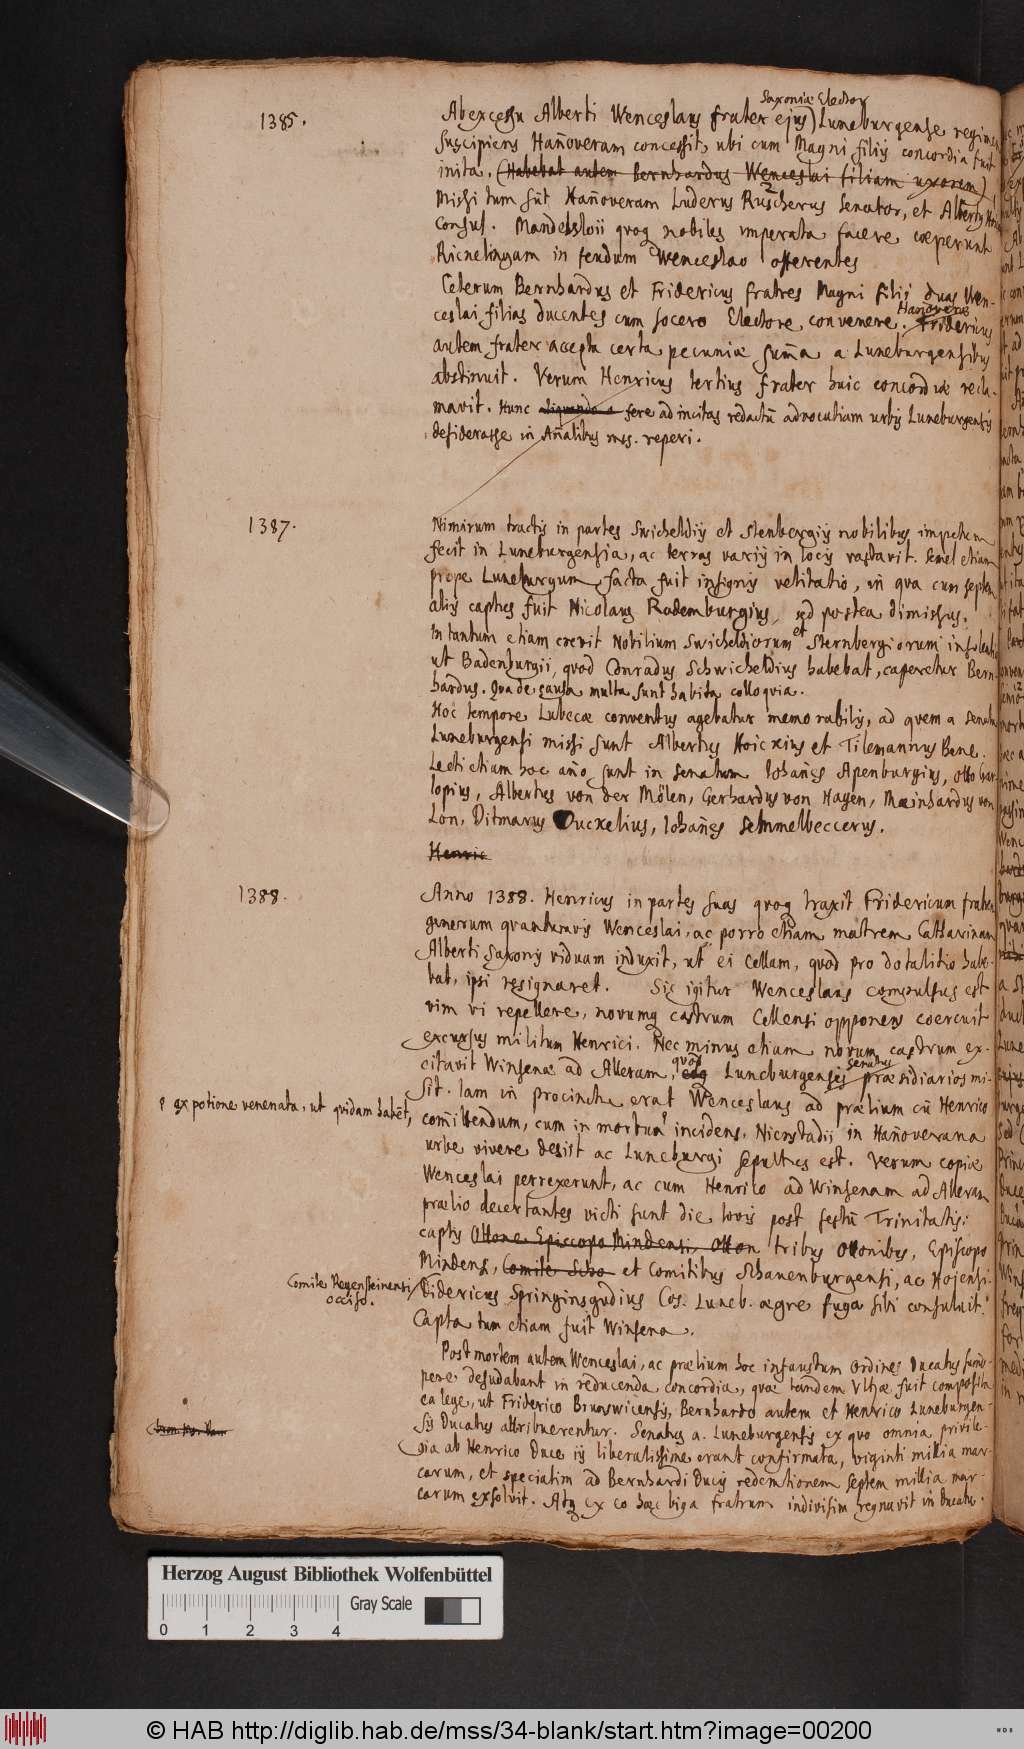 Saxoniæ Elector
1385. Ab excessu Alberti Wenceslaus frater ejus) Luneburgense regimen
suscipiens Hañoveram concessit, ubi cum Magni filiis concordia fuit
inita. (Habebat autem Bernhardus Wenceslai filiam uxorem)
Missi tum sūt Hañoveram Luderus Ruscherus Senator, et Albertus
Consul. Mandelsloii quoq nobiles imperata facere cœperunt
Ricnelingam in feudum Wenceslao offerentes
Ceterum Bernhardus et Fridericus fratres Magni filii duas Wen-
ceslai filias ducentes cum socero Electore convenere. Hanoveræ Fridericus
autem frater accepta certa pecuniæ sum̄a a Luneburgensibus
abstinuit. Verum Henricus tertius frater huic concordiæ recla-
mavit. Hunc aliquando a fere ad incitas redactū advocatiam urbis Luneburgensis
desiderasse in Añalibus mss. reperi.
1387. Nimirum tractis in partes Swicheldiis et Stenbergiis nobilibus impetum
fecit in Luneburgensia, ac terras variis in locis vastavit. Semel etiam
prope Luneburgum facta fuit insignis velitatio, in qua cum septem
aliis captus fuit Nicolaus Rademburgius, sed postea dimissus.
In tantum etiam crevit Nobilium Swicheldiorum et Sternbergiorum insolentia
ut Badenburgii, quod Conradus Schwicheldius habebat, caperetur Bern-
hardus. Qua de causa multa sunt habita colloquia.
Hoc tempore Lubecæ conventus agebatur memorabilis, ad quem a Senatu
Luneburgensi missi sunt Albertus Hoicxius et Tilemannus Bene.
Lecti etiam hoc año sunt in Senatum Iohañes Apenburgius, Otto Gar-
lopius, Albertus von der Mölen, Gerhardus von Hagen, Mæinhardus von
Lon, Ditmarus Ducxelius, Iohañes Semmelbeccerus.
Henric
1388. Anno 1388. Henricus in partes suas quoq traxit Fridericum fratrem
generum quantumvis Wenceslai, ac porro etiam matrem Catharinam
Alberti Saxonis viduam induxit, ut ei Cellam, quod pro dotalitio habe-
bat, ipsi resignaret. Sic igitur Wenceslaus compulsus est
vim vi repellere, novumq castrum Cellensi opponens coercuit
excursus militum Henrici. Nec minus etiam novum castrum ex-
citavit Winsenæ ad Alleram, quod Luneburgensis Senatus præsidiarios mi-
sit. Iam in procinctu erat Wenceslaus ad prælium cū Henrico
? ex potione venenata, ut quidam habēt, com̄ittendum, cum in mortuā incidens, Nienstadii in Hañoverana
urbe vivere desiit ac Luneburgi sepultus est. Verum copiæ
Wenceslai perrexerunt, ac cum Henrico ad Winsenam ad Alleram
prælio decertantes victi sunt die Iovis post festū Trinitatis:
captis Ottone Episcopo Mindensi, Otton tribus Ottonibus, Episcopo
Mindens, Comite Scho et Comitibus Schauenburgensi, ac Hojensi.
Comite Regensteinensi occiso.
Didericus Springinsgudius Cos. Luneb. ægre fuga sibi consuluit.
Capta tum etiam fuit Winsena.
Post mortem autem Wenceslai, ac prælium hoc infaustum Ordines Ducatus sum̄o-
pere desudabant in reducenda concordia, quæ tandem Ultzæ fuit composita
ea lege, ut Friderico Brunswicensis, Bernhardo autem et Henrico Luneburgen-
sis Ducatus attribuerentur. Senatus a. Luneburgensis ex quo omnia privile-
gia ab Henrico Duce iis liberalissime erant confirmata, viginti millia mar-
carum, et speciatim ad Bernhardi Ducis redemtionem septem millia mar-
carum exsolvit. Atq ex eo hæc biga fratrum indivisim regnavit in Ducatu.
Herzog August Bibliothek Wolfenbüttel
Gray Scale
0 1 2 3 4
© HAB http://diglib.hab.de/mss/34-blank/start.htm?image=00200